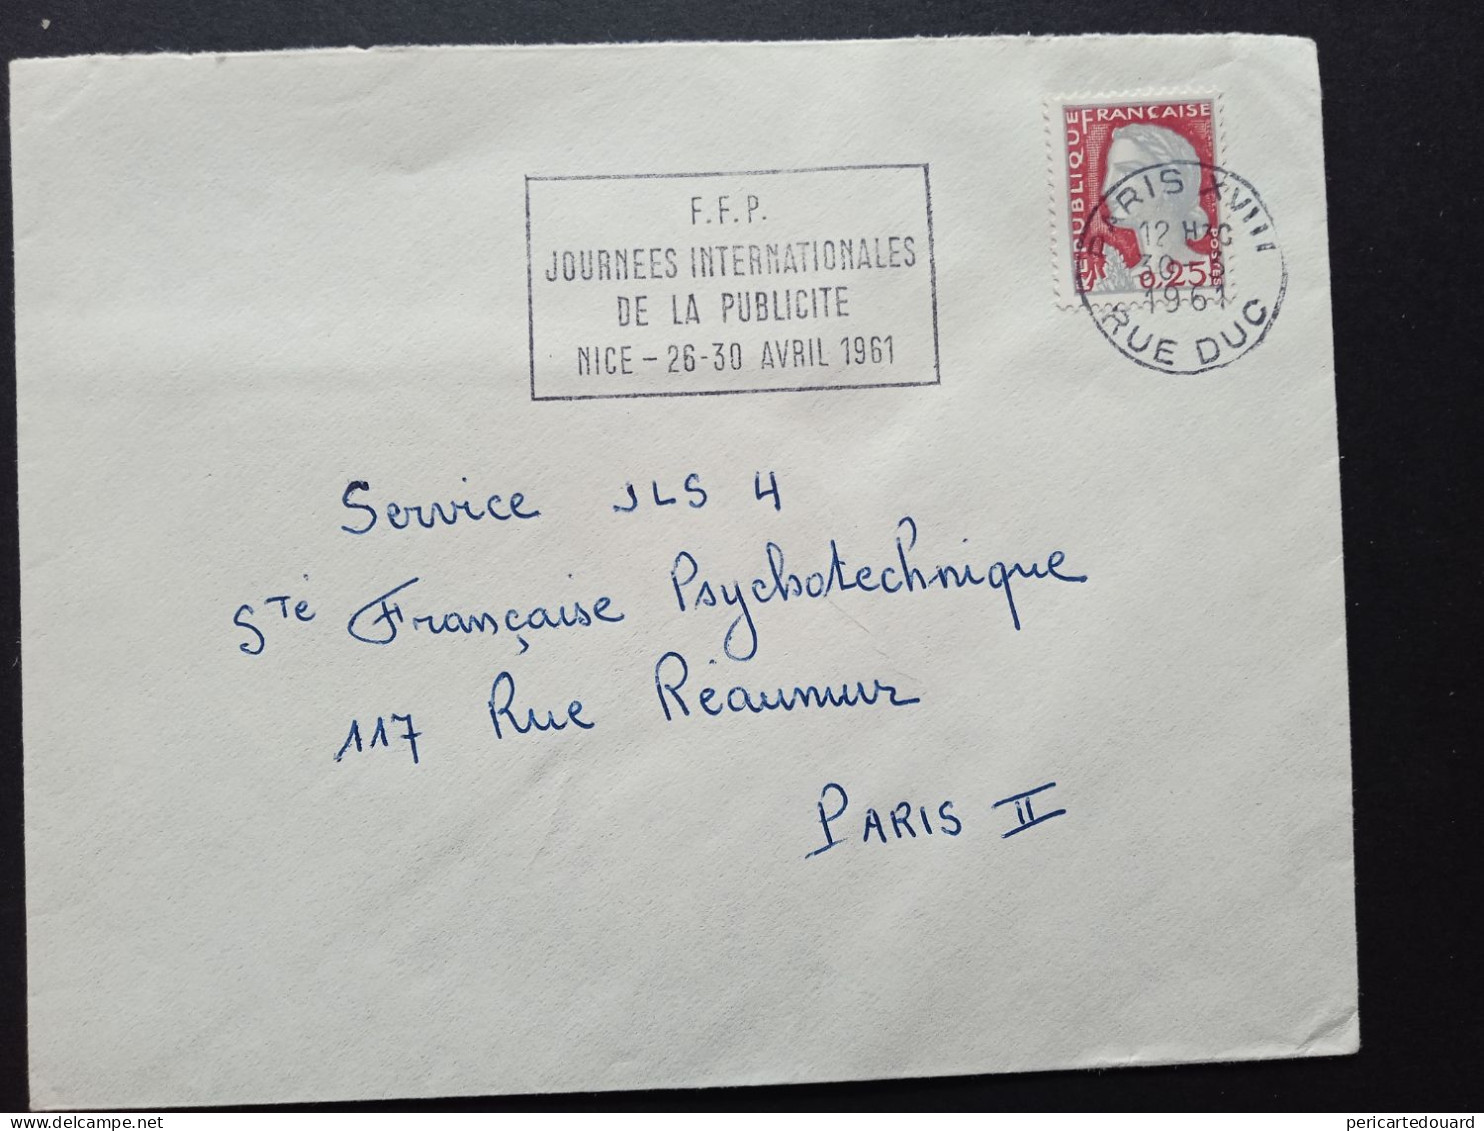 RÉPUBLIQUE FRANÇAISE
POSTES
0,25
PARIS XVIII
12 H
30
1961
RUE DUC
F.F.P.
JOURNEES INTERNATIONALES
DE LA PUBLICITE
NICE - 26-30 AVRIL 1961
Service JLS 4
Sté Française Psychotechnique
117 Rue Réaumur
PARIS II
pericartedouard